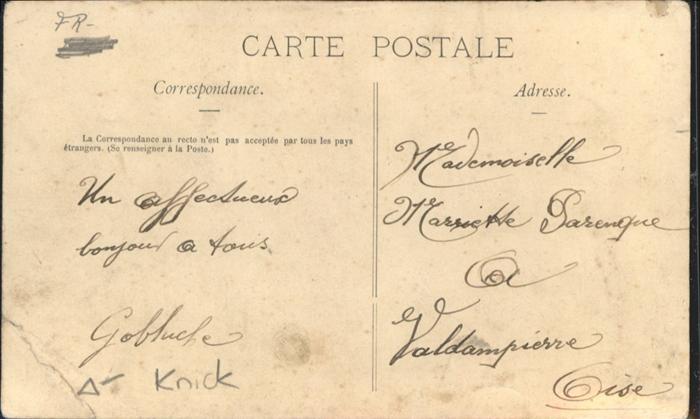 FR-
CARTE POSTALE
Correspondance.
La Correspondance au recto n'est pas acceptée par tous les pays
étrangers. (Se renseigner à la Poste.)
Un affectueux
bonjour a tous
Knick
Adresse.
Mademoiselle
Mariette
a
Valdampierre
Oise